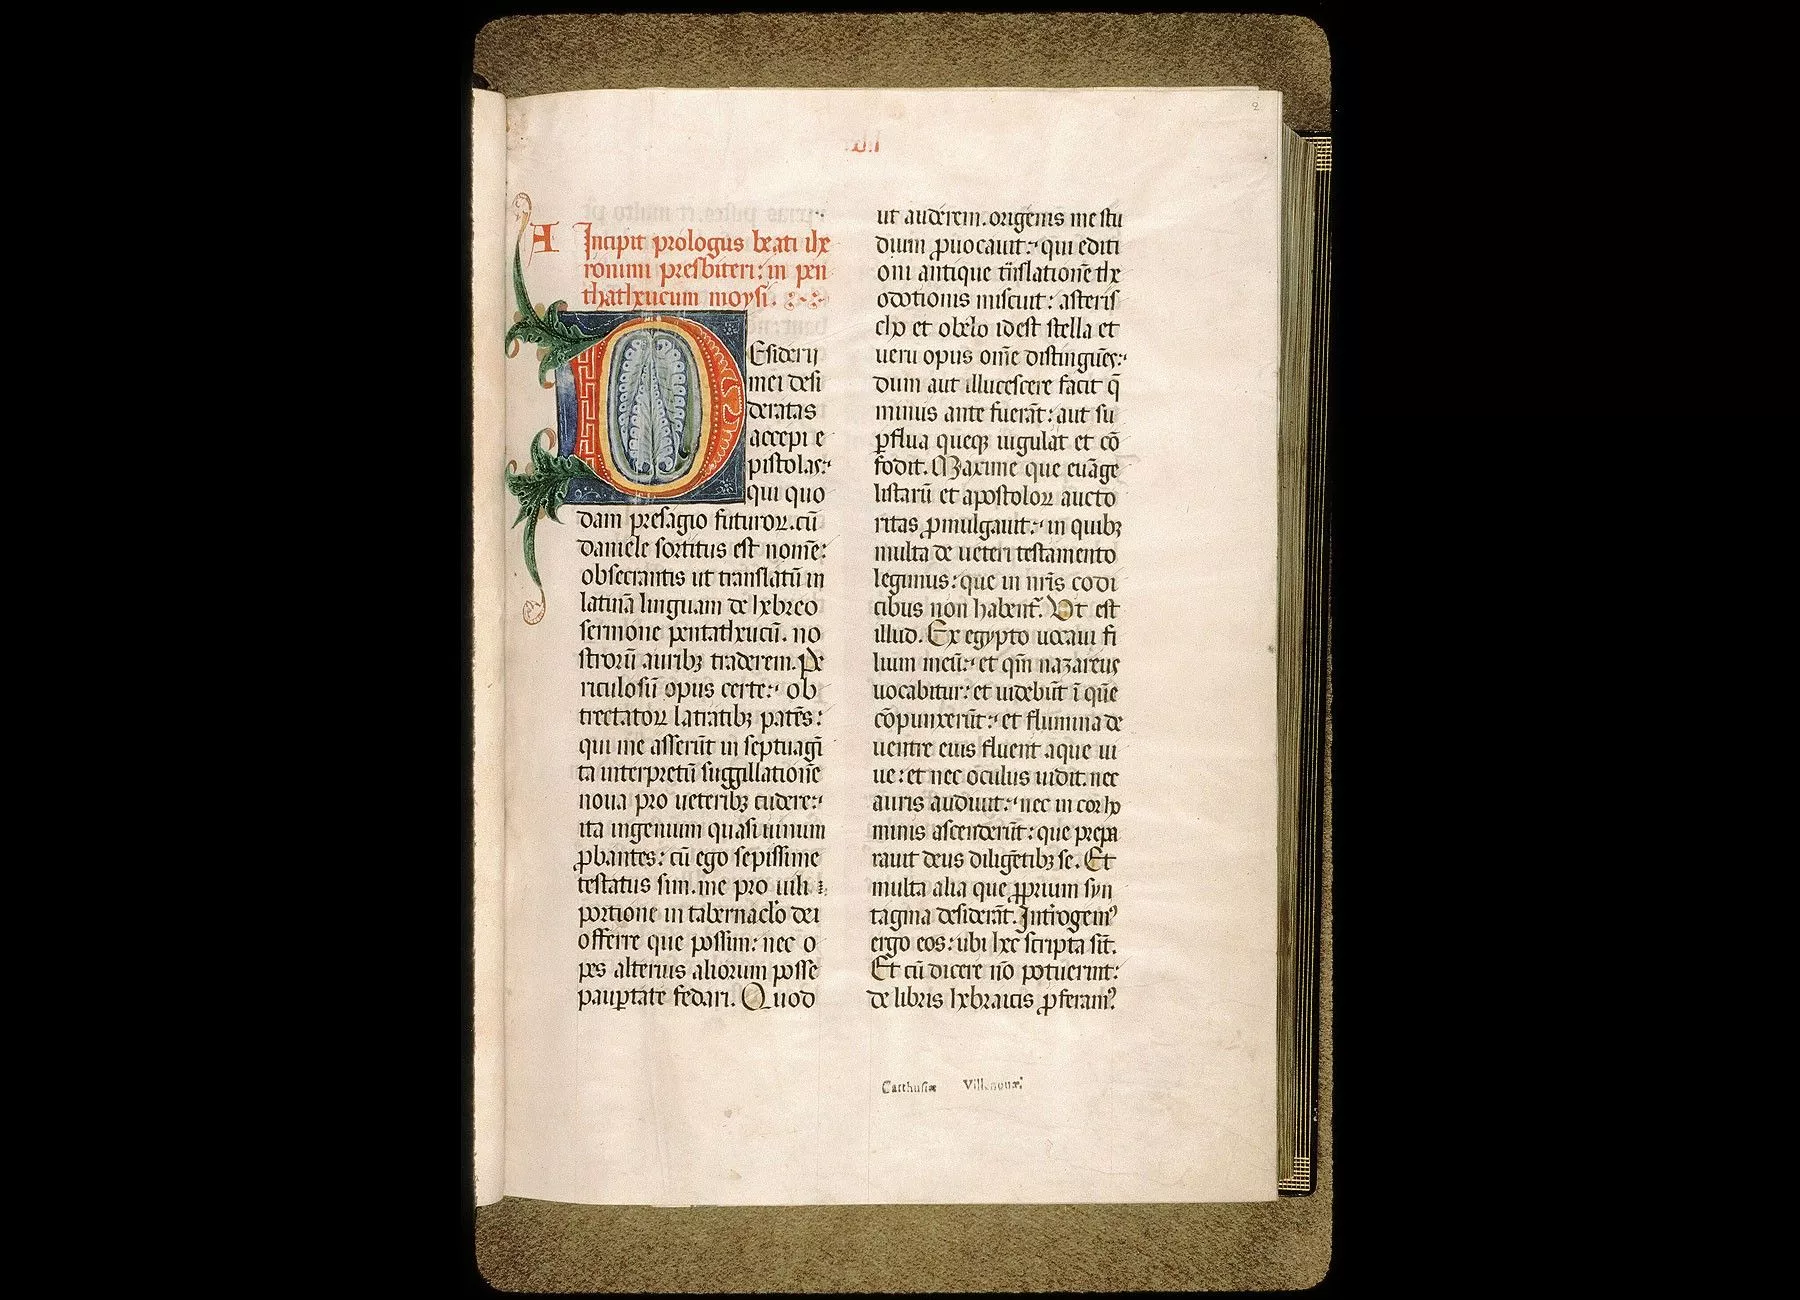 2
A
Incipit prologus beati ihe
ronimi presbiteri: in pen
thatheucum moysi.
DEsiderii
mei desi
deratas
accepi e
pistolas:
qui quo
dam presagio futuroꝝ. cū
daniele sortitus est nomē:
obsecrantis ut translatū in
latinā linguam de hebreo
sermone pentatheucū. no
strorū auribꝫ traderem. Pe
riculosū opus certe: ob
trectatoꝝ latratibꝫ patēs:
qui me asserūt in septuagī
ta interpretū suggillationē
noua pro ueteribꝫ cudere:
ita ingenium quasi uinum
ꝓbantes: cū ego sepissime
testatus sim. me pro uili
portione in tabernac̄lo dei
offerre que possim: nec o
pes alterius aliorum posse
pauꝑtate fedari. Quod
ut auderem. origenis me stu
dium ꝓuocauit: qui editi
oni antique trāslationē the
odotionis miscuit: asteris
cho et obelo id est stella et
ueru opus om̄e distinguēs:
dum aut illucescere facit q̄
minus ante fuerāt: aut su
ꝑflua queqꝫ iugulat et cō
fodit. Maxime que euāge
listarū et apostoloꝝ aucto
ritas ꝓmulgauit: in quibꝫ
multa de ueteri testamento
legimus: que in nr̄is codi
cibus non habent̄. Ut est
illud. Ex egypto uocaui fi
lium meū: et qm̄ nazareus
uocabitur: et uidebūt ī quē
cōpunxerūt: et flumina de
uentre eius fluent aque ui
ue: et nec oculus uidit. nec
auris audiuit: nec in cor ho
minis ascenderūt: que prepa
rauit deus diligētibꝫ se. Et
multa alia que ꝓprium syn
tagma desiderāt. Int̄rogemꝰ
ergo eos: ubi hec scripta sīt.
Et cū dicere nō potuerint:
de libris hebraicis ꝓferamꝰ
Carthusiæ Villenouæ